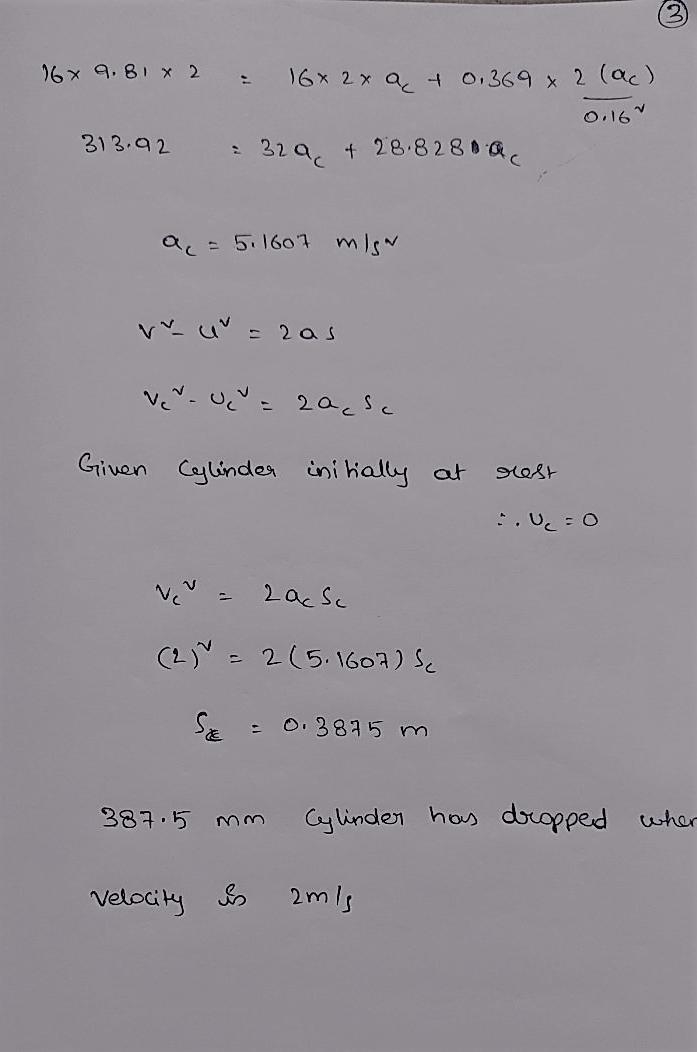 3
16 × 9.81 × 2 = 16 × 2 × a_c + 0.369 × 2 (a_c)
0.16²
313.92 = 32 a_c + 28.828 a_c
a_c = 5.1607 m/s²
v² - u² = 2as
v_c² - u_c² = 2 a_c s_c
Given Cylinder initially at rest
∴ u_c = 0
v_c² = 2 a_c s_c
(2)² = 2 (5.1607) s_c
s_c = 0.3875 m
387.5 mm Cylinder has dropped when
velocity is 2 m/s